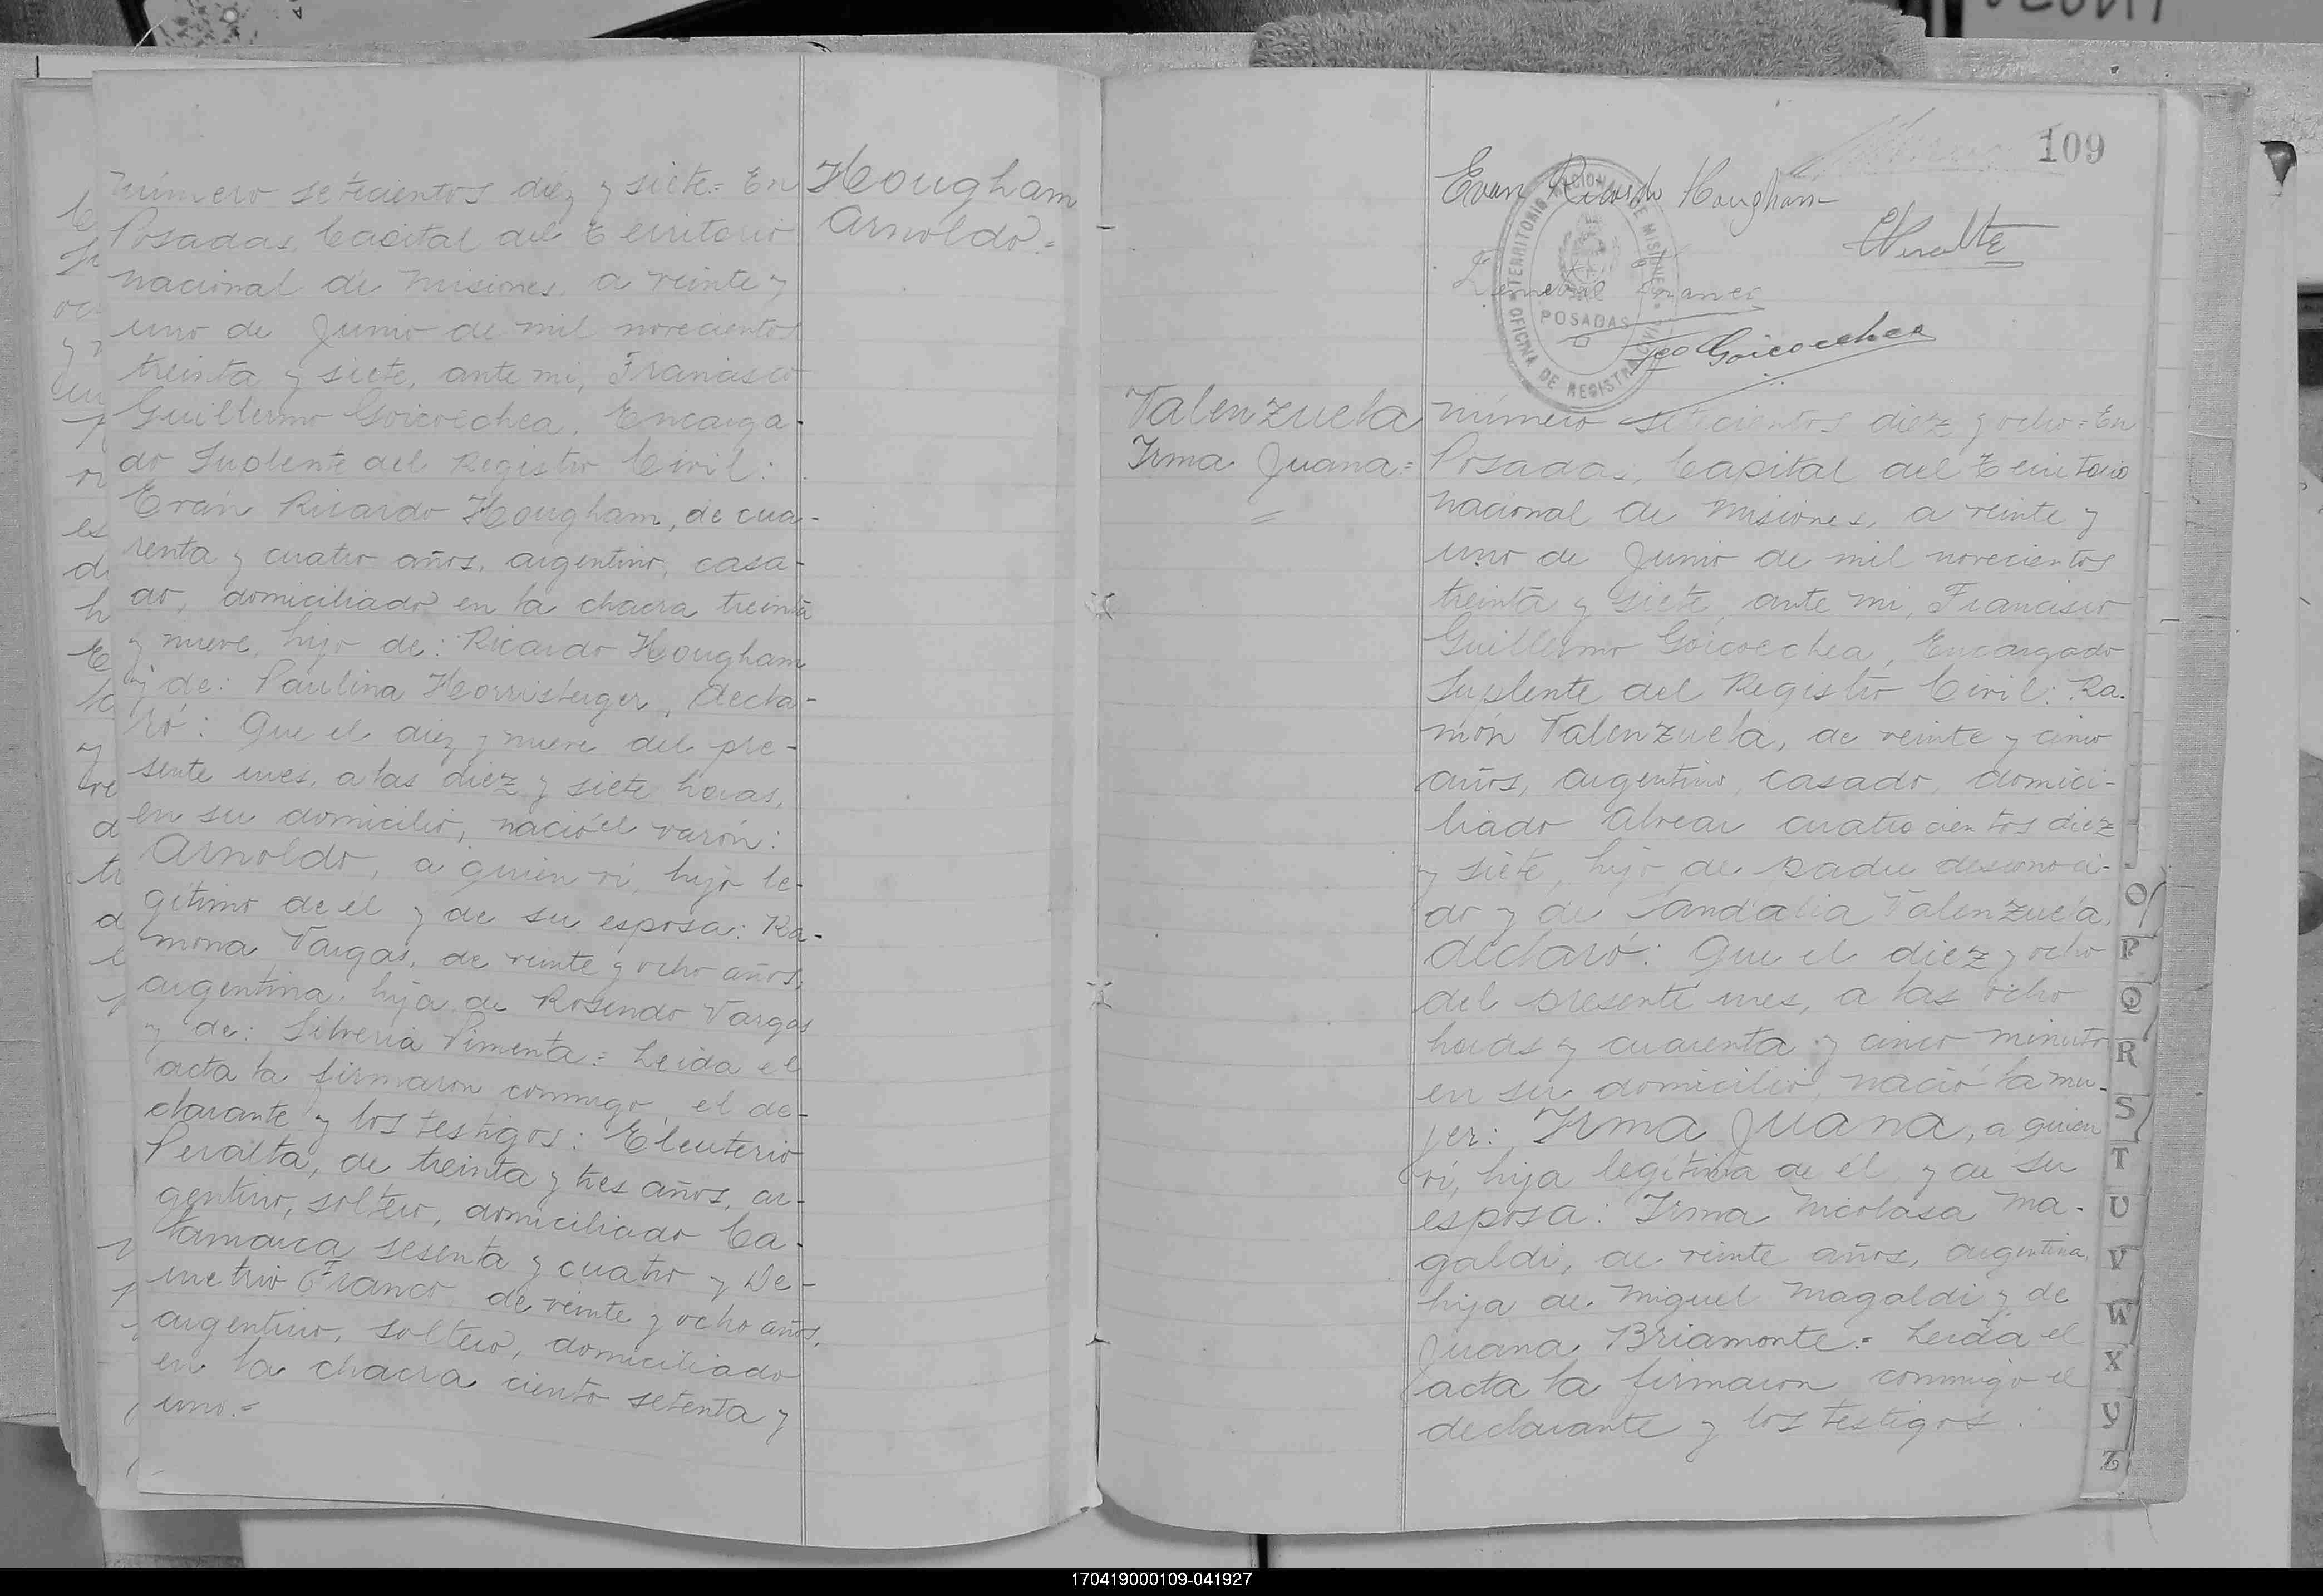 Número setecientos diez y siete.= En
Posadas, Capital del Territorio
nacional de Misiones, a veinte y
uno de Junio de mil novecientos
treinta y siete, ante mi, Francisco
Guillermo Goicoechea, Encarga-
do Suplente del Registro Civil:
Evan Ricardo Hougham, de cua-
renta y cuatro años, argentino, casa-
do, domiciliado en la chacra treinta
y nueve, hijo de: Ricardo Hougham
y de: Paulina, decla-
ró: Que el diez y nueve del pre-
sente mes, a las diez y siete horas,
en su domicilio, nació el varón:
Arnoldo, a quien ví, hijo le-
gítimo de él y de su esposa: Ra-
mona Vargas, de veinte y ocho años,
argentina, hija de Rosendo Vargas
y de: Silveria Pimenta= Leída el
acta la firmaron conmigo, el de-
clarante y los testigos: Eleuterio
Peralta, de treinta y tres años, ar-
gentino, soltero, domiciliado Ca-
tamarca sesenta y cuatro y De-
metrio Franco, de veinte y ocho años,
argentino, soltero, domiciliado
en la chacra ciento setenta y
uno.=
Hougham
Arnoldo=
109
Evan Ricardo Hougham
EPeralta
Demetrio Franco
Fco Goicoechea
TERRITORIO NACIONAL DE MISIONES
OFICINA DE REGISTRO CIVIL
POSADAS
Valenzuela
Irma Juana=
=
Número setecientos diez y ocho= En
Posadas, Capital del Territorio
nacional de Misiones, a veinte y
uno de Junio de mil novecientos
treinta y siete, ante mi, Francisco
Guillermo Goicoechea, Encargado
Suplente del Registro Civil: Ra-
món Valenzuela, de veinte y cinco
años, argentino, casado, domici-
liado Alvear cuatrocientos diez
y siete, hijo de padre desconoci-
do y de Sandalia Valenzuela,
declaró: Que el diez y ocho
del presente mes, a las ocho
horas y cuarenta y cinco minutos
en su domicilio, nació la mu-
jer: Irma Juana, a quien
ví, hija legítima de él, y de su
esposa: Irma Nicolasa Ma-
galdi, de veinte años, argentina,
hija de Miguel Magaldi y de
Juana Briamonte.= Leída el
acta la firmaron conmigo el
declarante y los testigos:
O
P
Q
R
S
T
U
V
W
X
Y
Z
170419000109-041927